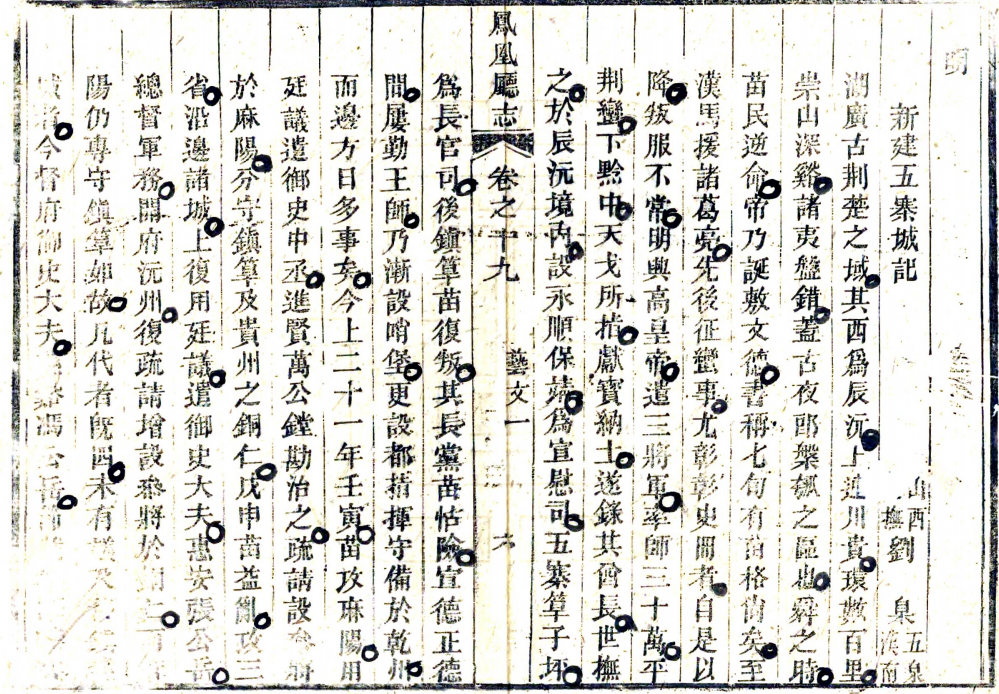 明
新建五寨城記
山西
撫
劉
臬
五泉
湖廣古荆楚之域其西爲辰沅上連川貴環數百里
崇山深谿諸夷盤錯蓋古夜郎槃瓠之區也舜之時
苗民逆俞帝乃誕敷文德書稱七旬有苗格尙矣至
漢馬援諸葛亮先後征蠻事尤彰彰史冊者自是以
降叛服不常明興高皇帝遣三將軍率師三十萬平
荆蠻下黔中天戈所指獻寶納土遂錄其酋長世撫
之於辰沅境內設永順保靖爲宣慰司五寨筸子坪
鳳凰廳志 卷之十九 藝文一 六
爲長官司後鎮筸苗復叛其長黨苗怙險宣德正德
間屢勤王師乃漸設哨堡更設都指揮守備於乾州
而邊方日多事矣今上二十一年壬寅苗攻麻陽用
廷議遣御史中丞進賢萬公鏜勘治之疏請設叅將
於麻陽分守鎮筸及貴州之銅仁戊申苗益亂攻三
省沿邊諸城上復用廷議遣御史大夫惠安張公岳
總督軍務開府沅州復疏請增設叅將於
陽仍專守鎮筸如故凡代者旣四未有
者今督府御史大夫 馮公岳